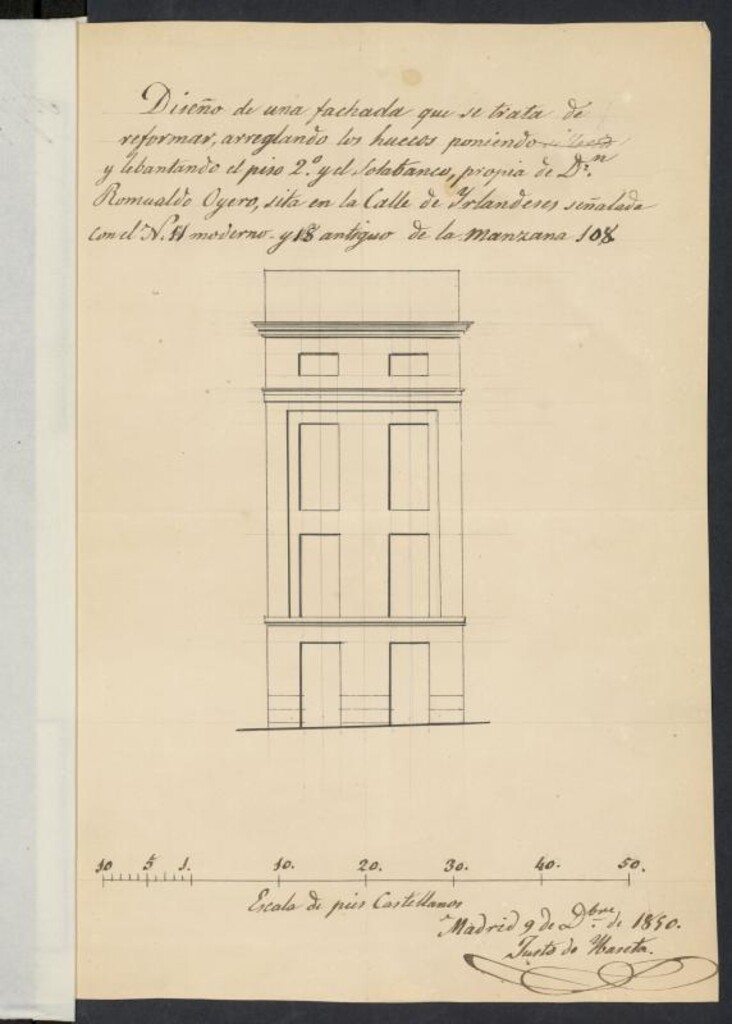 Diseño de una fachada que se trata de
reformar, arreglando los huecos poniendo
y lebantando el piso 2.º y el Sotabanco, propia de D.n
Romualdo Oyero, sita en la Calle de Yrlandeses señalada
con el N. 11 moderno y 18 antiguo de la Manzana 108
10 5 1. 10. 20. 30. 40. 50.
Escala de pies Castellanos
Madrid 9 de D.bre de 1850.
Justo de